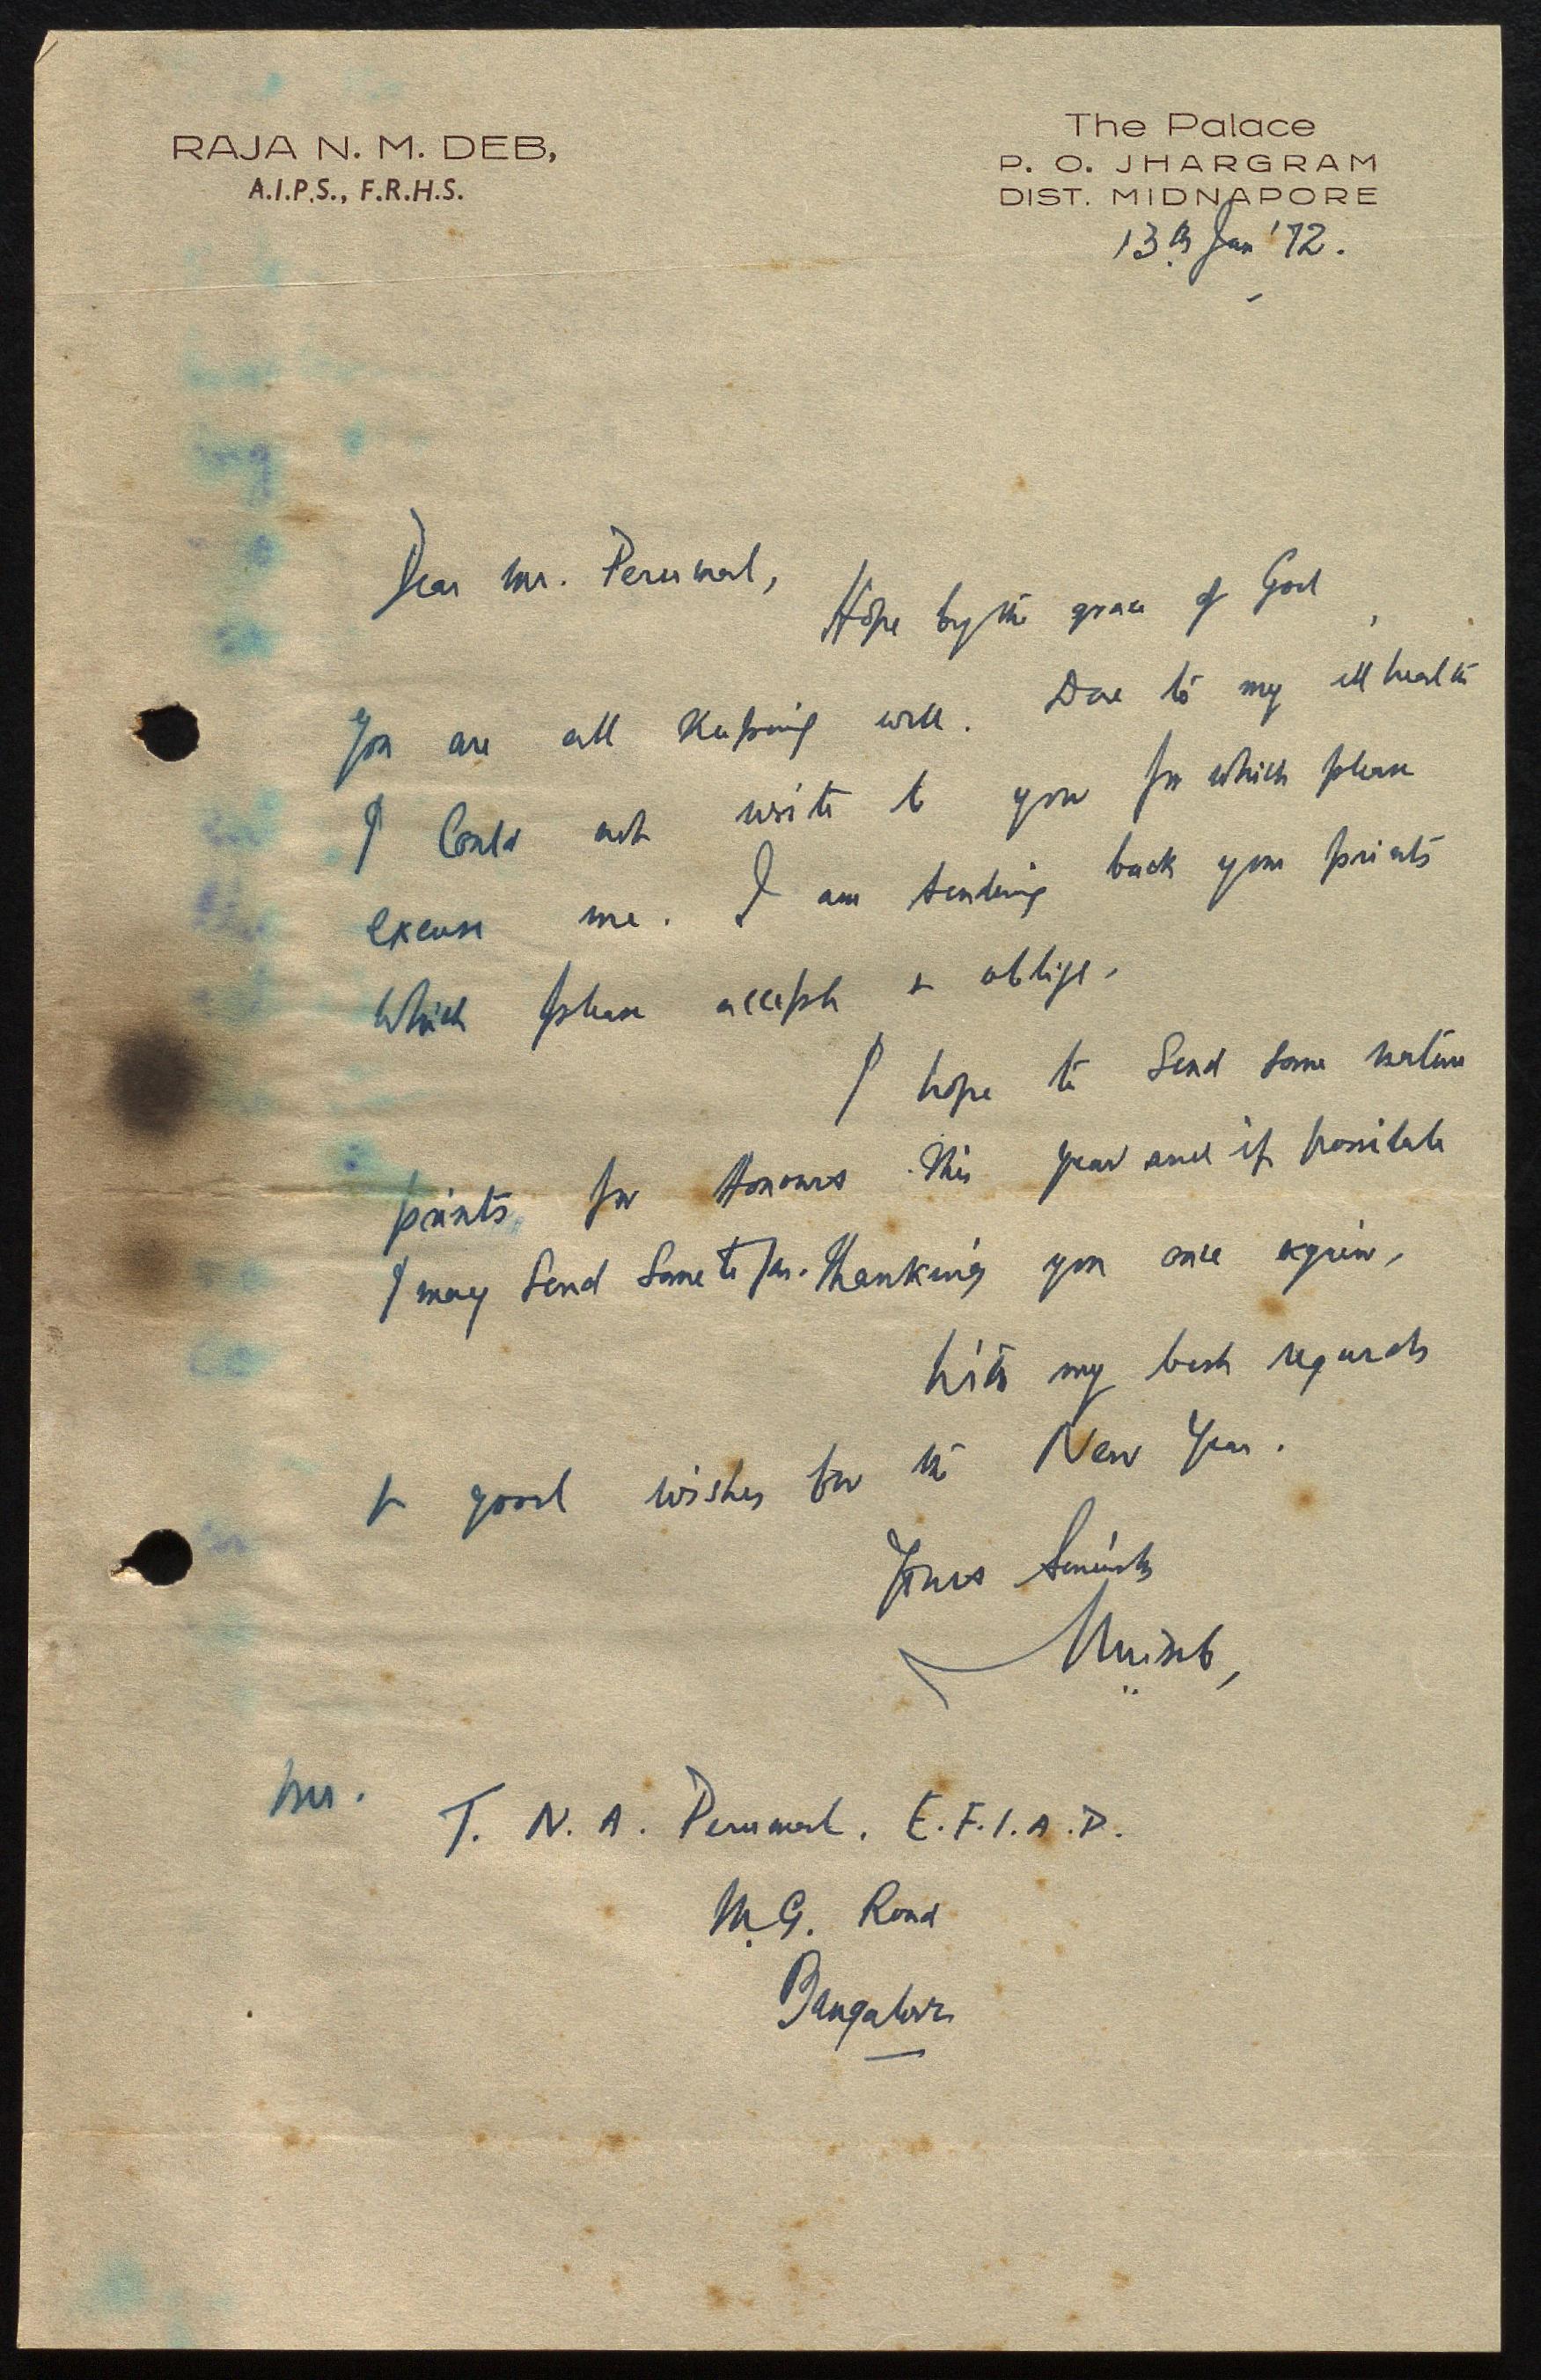 RAJA N. M. DEB,
A.I.P.S., F.R.H.S.
The Palace
P. O. JHARGRAM
DIST. MIDNAPORE
13th Jan '72.
Dear Mr. Perumal,
Hope by the grace of God,
you are all keeping well. Due to my ill health
I could not write to you for which please
excuse me. I am sending back your prints
which please accept & oblige.
I hope to send some nature
prints for Honours this year and if possible
I may send some to you. Thanking you once again,
With my best regards
& good wishes for the New Year.
Yours Sincerely
Mr.
T. N. A. Perumal. E.F.I.A.P.
M.G. Road
Bangalore